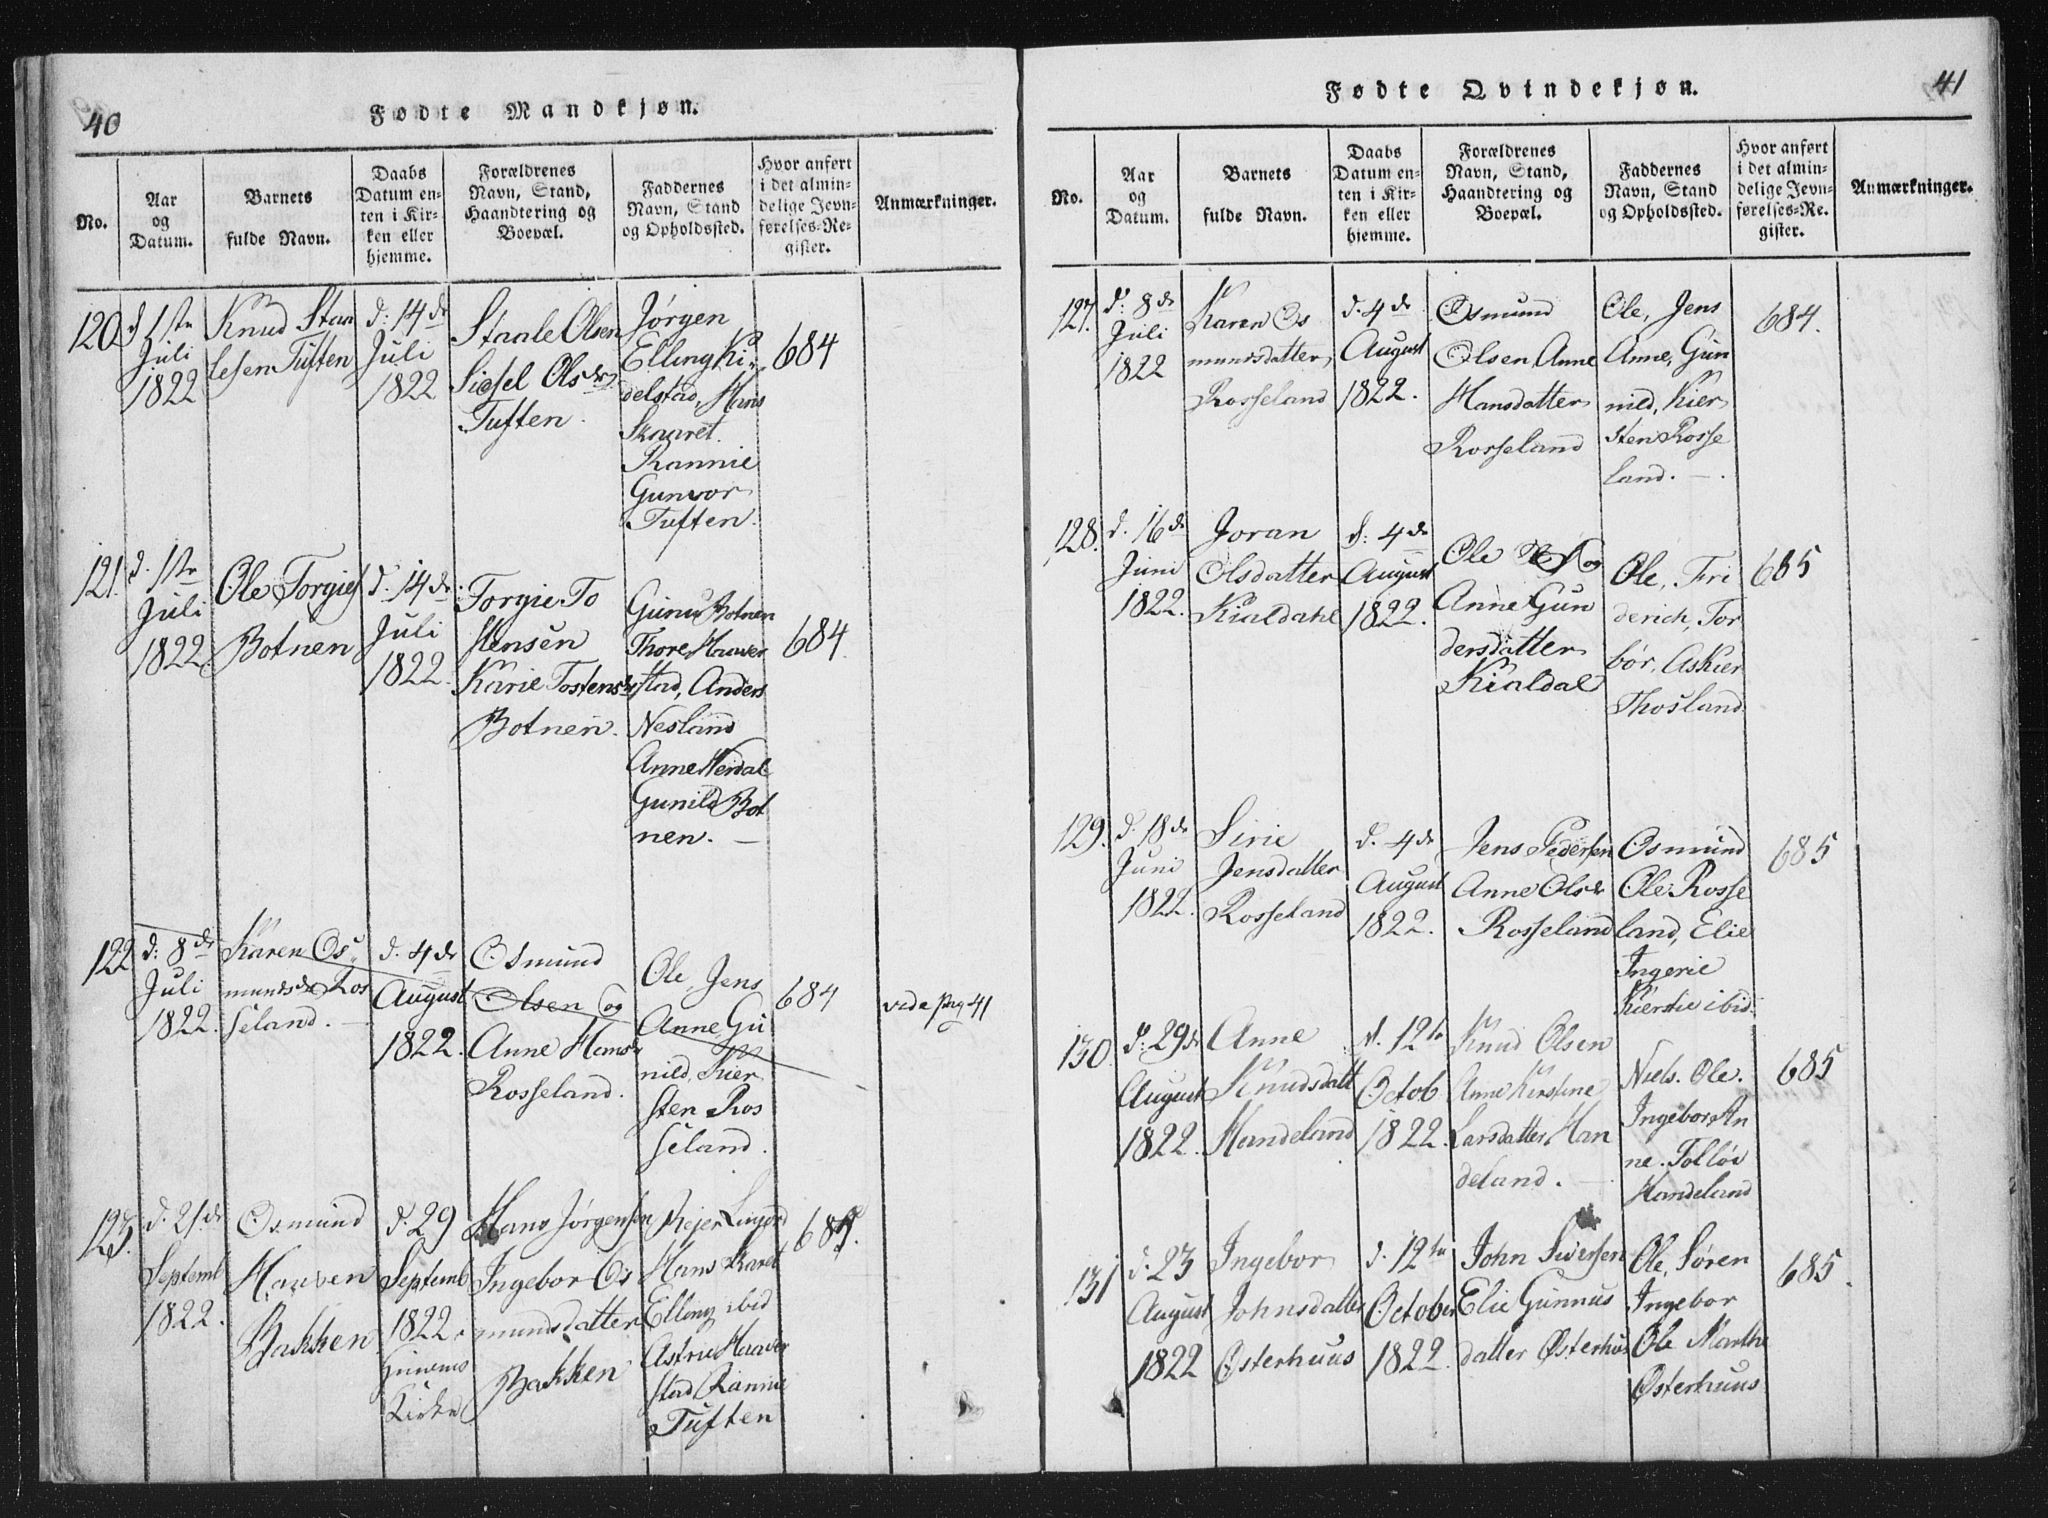 40
Fødte Mandkjøn.
No.
Aar
og
Datum.
Barnets
fulde Navn.
Daabs
Datum en-
ten i Kir-
ken eller
hjemme.
Forældrenes
Navn, Stand,
Haandtering og
Boepæl.
Faddernes
Navn, Stand
og Opholdssted.
Hvor anført
i det almin-
delige Jevn-
førelses-Re-
gister.
Anmærkninger.
120
d 1ste
Juli
1822
Knud Staa
lesen Tuften
d: 14de
Juli
1822
Staale Olsen
Sidsel Olsdr
Tuften.
Jørgen
Elling Ki
delstad, Hans
Skaaret.
Rannie
Gunvor
Tuften.
684
121.
d. 1ste
Juli
1822
Ole Torgies
Botnen
d. 14de
Juli
1822.
Torgie To
stensen
Karie Tostensdr
Botnen.
Gunu Botnen
Thore Haaver
stad, Anders
Nesland
Anne Heidal
Gunild Bot
nen. —
684.
122
d: 8de
Juli
1822.
Karen Os
mundsdr Ros
seland. —
d. 4de
August
1822.
Osmund
Olsen og
Anne Hansdr
Rosseland.
Ole, Jens
Anne, Gu
nild, Kier
sten Ros
seland.
684
vide pag 41
123.
d. 21de
Septemb
1822.
Osmund
Hansen
Bakken
d. 29
Septemb
1822.
Kirke
Hans Jørgensen
Ingebor Os
mundsdatter
Bakken
Hans Skaret
Elling ibid
Astrie Haaver
stad Rannie
Tuften
685.
41
Fødte Qvindekjøn.
No.
Aar
og
Datum.
Barnets
fulde Navn.
Daabs
Datum en-
ten i Kir-
ken eller
hjemme.
Forældrenes
Navn, Stand,
Haandtering og
Boepæl.
Faddernes
Navn, Stand
og Opholdssted.
Hvor anført
i det almin-
delige Jevn-
førelses-Re-
gister.
Anmærkninger.
127.
d: 8de
Juli
1822
Karen Os
mundsdatter
Rosseland
d. 4de
August
1822.
Osmund
Olsen Anne
Hansdatter
Rosseland
Ole, Jens
Anne, Gun
nild, Kier
sten Rosse
land. —.
684.
128.
d. 16de
Juni
1822.
Joran
Olsdatter
Kialdahl
d. 4de
August
1822.
Ole og
Anne Gun
dersdatter
Kialdal
Ole, Fri
derich, Tor
bør, Askier
Thosland.
685
129.
d. 18de
Juni
1822.
Sirie
Jensdatter
Rosseland
d. 4de
August
1822.
Jens Pedersen
Anne Olsdr
Rosseland
Osmund
Ole Rosse
land, Elie
Ingerie
Kierstie ibid.
685
130
d. 29de
August
1822.
Anne
Knudsdatt
Handeland
d. 12te
Octob
1822.
Knud Olsen
Anne Kirstine
Larsdatter Han
deland. —
Niels. Ole.
Ingebor An
ne. Tolløv
Handeland
685
131
d. 23
August
1822
Ingebor
Johnsdatter
Osterhuus
d. 12te
October
1822.
John Siversen
Elie Gunnus
datter Østerhus
Ole, Søren
Ingebor
Ole Marthe
Østerhuus
685.